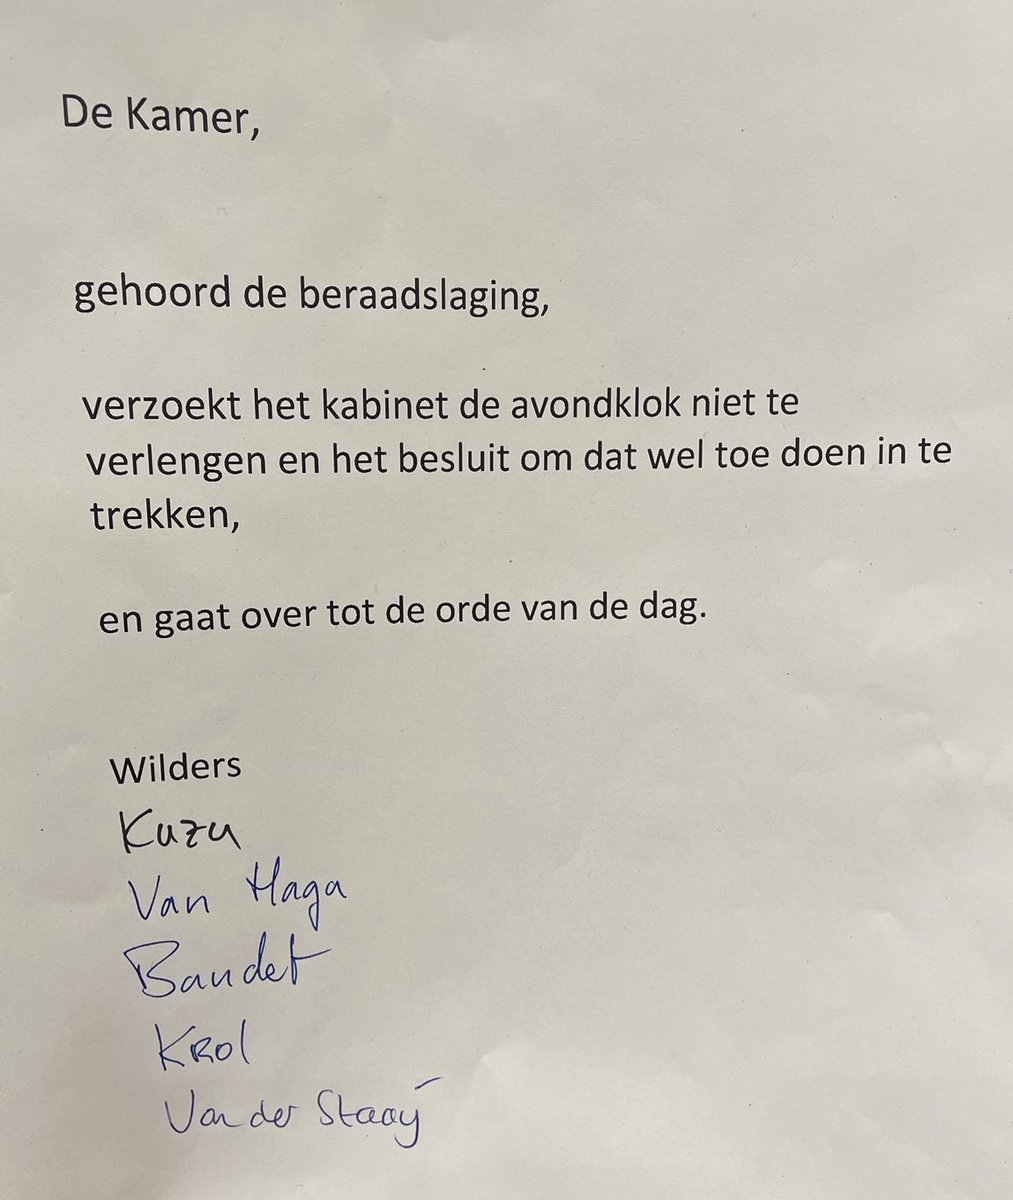 De Kamer,
gehoord de beraadslaging,
verzoekt het kabinet de avondklok niet te
verlengen en het besluit om dat wel toe doen in te
trekken,
en gaat over tot de orde van de dag.
Wilders
Kuzu
Van Haga
Baudet
Krol
Van der Staaij